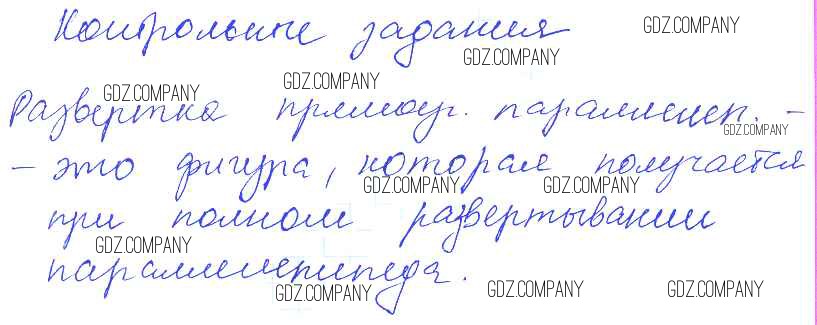 Контрольные задания
GDZ.COMPANY
GDZ.COMPANY
GDZ.COMPANY
GDZ.COMPANY
Развертка прямоуг. параллелеп. -
GDZ.COMPANY
- это фигура, которая получается
GDZ.COMPANY GDZ.COMPANY
при полном развертывании
GDZ.COMPANY
параллелепипеда.
GDZ.COMPANY GDZ.COMPANY GDZ.COMPANY